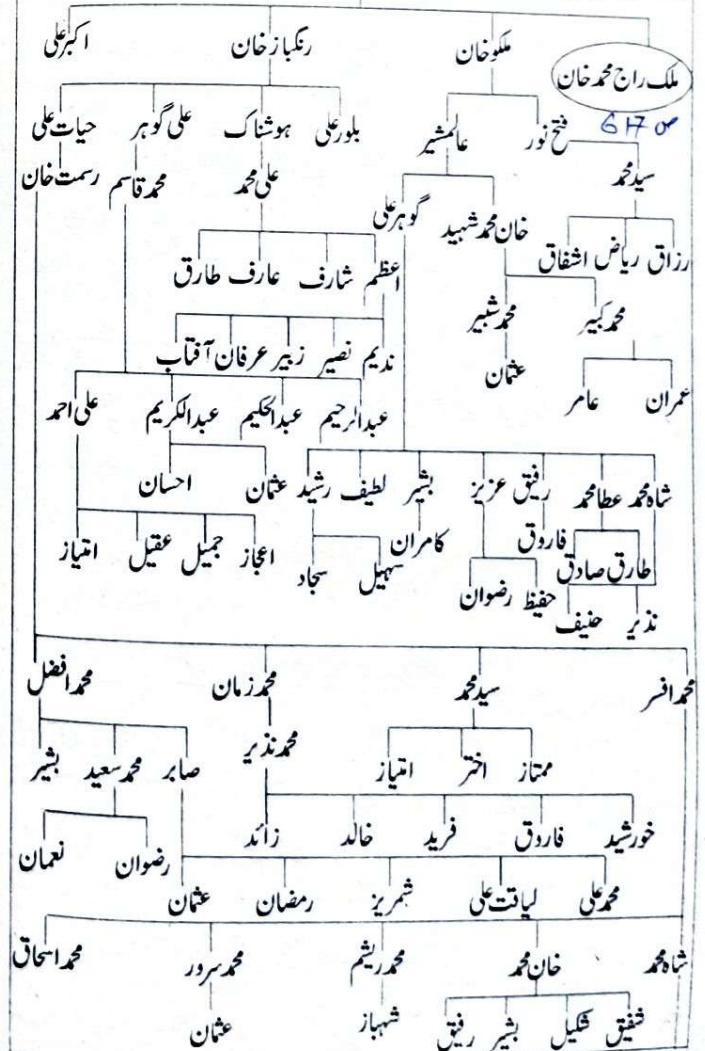 ملک راج محمد خان ملکو خان رنگباز خان اکبر علی
617
فتح نور عالمشیر بلور علی ہوشناک علی گوہر حیات علی
سید محمد علی محمد محمد قاسم رسمت خان
خان محمد شہید گوہر علی
رزاق ریاض اشفاق اعظم شارف عارف طارق
محمد کبیر محمد شبیر
ندیم نصیر زبیر عرفان آفتاب
عمران عامر عثمان عبدالرحیم عبدالحکیم عبدالکریم علی احمد
شاہ محمد عطا محمد رفیق عزیز بشیر لطیف رشید عثمان احسان
فاروق کامران اعجاز جمیل عقیل امتیاز
طارق صادق سہیل سجاد
نذیر حنیف حفیظ رضوان
محمد افسر سید محمد محمد زمان محمد افضل
محمد نذیر
ممتاز اختر امتیاز صابر محمد سعید بشیر
خورشید فاروق فرید خالد زائد
رضوان نعمان
محمد علی لیاقت علی شمریز رمضان عثمان
شاہ محمد خان محمد محمد ریشم محمد سرور محمد اسحاق
شفیق شکیل بشیر رفیق شہباز عثمان